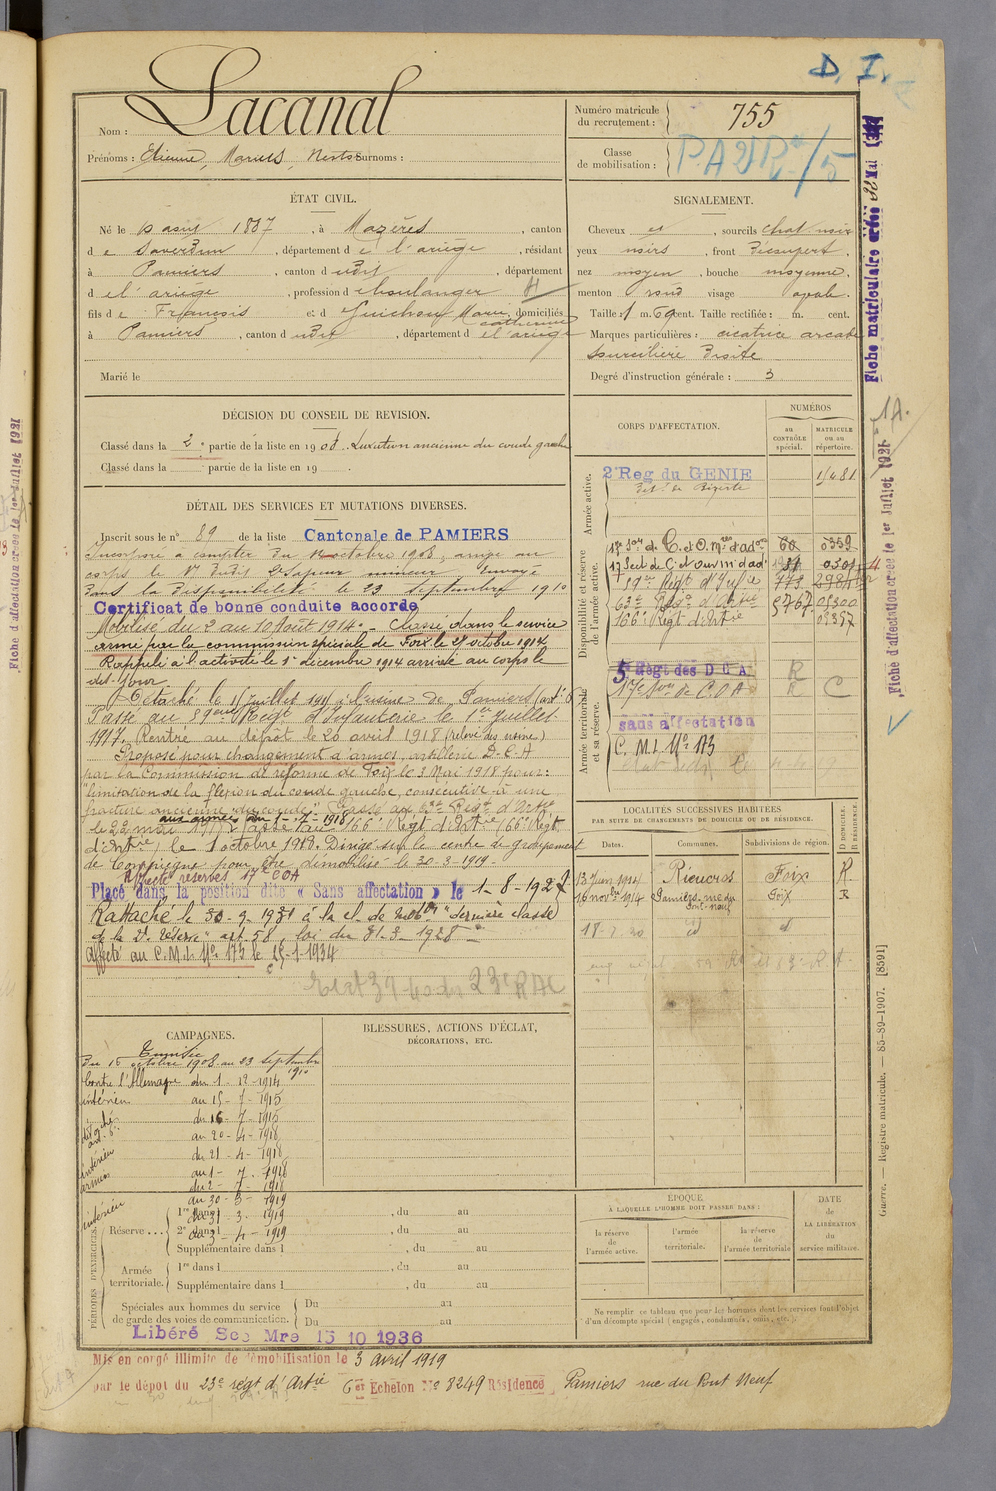 D. I.
Nom : Lacanal
Prénoms : Etienne, Marius, Nestor Surnoms :
Numéro matricule du recrutement : 755
Classe de mobilisation :
ÉTAT CIVIL.
Né le août 1887, à Mazères, canton
de Saverdun, département de l'ariège, résidant
à Pamiers, canton dudit, département
de l'ariège, profession de boulanger
fils de François et de Guichou Marie Catherine, domiciliés
à Pamiers, canton dudit, département de l'ariège
Marié le
SIGNALEMENT.
Cheveux et, sourcils chat noir
yeux noirs, front Découvert,
nez moyen, bouche moyenne,
menton rond visage ovale.
Taille : 1 m. 69 cent. Taille rectifiée : m. cent.
Marques particulières : cicatrice arcade
sourcilière droite
Degré d'instruction générale : 3
DÉCISION DU CONSEIL DE REVISION.
Classé dans la 2e partie de la liste en 1908. Luxation ancienne du coude gauche
Classé dans la partie de la liste en 19 .
DÉTAIL DES SERVICES ET MUTATIONS DIVERSES.
Inscrit sous le n° 89 de la liste Cantonale de PAMIERS
Incorporé à compter du octobre 1908, arrivé au
corps le dit 2e Sapeur mineur. Envoyé
dans la disponibilité le 23 septembre 1910
Certificat de bonne conduite accordé
Mobilisé du 2 au 10 Août 1914. Classé dans le service
armé par la commission spéciale de Foix le 27 octobre 1914
Rappelé à l'activité le 1er décembre 1914 arrivé au corps le
dit jour.
Détaché le juillet 1915 à l'usine de Pamiers (art. 6
Passé au 89eme Régt d'Infanterie le 1er juillet
1917. Rentré au dépôt le 20 avril 1918 (relevé des usines)
Proposé pour changement d'armes, artillerie D-C-A
par la Commission de réforme de Foix le 3 Mai 1918 pour :
"limitation de la flexion du coude gauche, consécutive à une
fracture ancienne du coude". Passé au 63e Régt d'Artie
le 22 mai 1918 aux armées du 1-7-1918. Passé au 166e Régt d'Artie (66e Régt
d'Artie) le 1 octobre 1918. Dirigé sur le centre de groupement
de Compiègne pour être démobilisé le 30-3-1919.
Affecté réserves 17e COA
Placé dans la position dite « Sans affectation » le 1-8-1927
Rattaché le 30-9-1931 à la cl. de mobon "dernière classe
de la 2e réserve" art. 58, loi du 31-3-1928
Affecté au C.M.I. No 173 le 15-1-1934
CORPS D'AFFECTATION.
NUMÉROS
au CONTRÔLE spécial.
MATRICULE ou au répertoire.
Armée active.
2e Reg du GENIE 1/481
Det. de Bizerte
Disponibilité et réserve de l'armée active.
17e Son de C. et O. mres d'adon 60 0559
17 Sect de C et Ouv m d'ad
Régt d'Infie 778
63e Régt d'Artie 5767 05300
166e Régt d'Artie 05357
Armée territoriale et sa réserve.
5e Régt des D C A R
17e Son de C.O.A R C
sans affectation
C. M. I. No 173
LOCALITÉS SUCCESSIVES HABITÉES
PAR SUITE DE CHANGEMENTS DE DOMICILE OU DE RÉSIDENCE.
Dates. Communes. Subdivisions de région. D DOMICILE. R RÉSIDENCE.
13 Juin 1914 Rieucros Foix R
16 novbre 1914 Pamiers, rue du Pont-neuf Foix R
18-7-20 id id
CAMPAGNES.
Tunisie
Du 15 octobre 1908 au 23 septembre 1910
Contre l'Allemagne du 1-12-1914
intérieur au 15-7-1915
détaché art. 6. du 16-7-1915
au 20-4-1918
intérieur du 21-4-1918
au 1-7-1918
armées du 2-7-1918
au 30-3-1919
intérieur du 31-3-1919
au 3-4-1919
BLESSURES, ACTIONS D'ÉCLAT,
DÉCORATIONS, ETC.
PÉRIODES D'EXERCICES.
Réserve...
1re dans l , du au
2e dans l , du au
Supplémentaire dans l , du au
Armée territoriale.
1re dans l , du au
Supplémentaire dans l , du au
Spéciales aux hommes du service de garde des voies de communication.
Du au
Du au
ÉPOQUE
À LAQUELLE L'HOMME DOIT PASSER DANS :
la réserve de l'armée active.
l'armée territoriale.
la réserve de l'armée territoriale
DATE DE LA LIBÉRATION du service militaire.
Ne remplir ce tableau que pour les hommes dont les services font l'objet
d'un décompte spécial (engagés, condamnés, omis, etc.).
Libéré Sce Mre 15 10 1936
Mis en congé illimité de démobilisation le 3 avril 1919
par le dépôt du 23e régt d'Artie 6er Echelon No 8249 Résidence Pamiers rue du Pont Neuf
Fiche matriculaire créée 22 Mai
Fiche d'affectation créée le 1er Juillet 1921
Guerre. — Registre matricule. — 85-89-1907. [8591]
Fiche d'affectation créée le 1er Juillet 1921